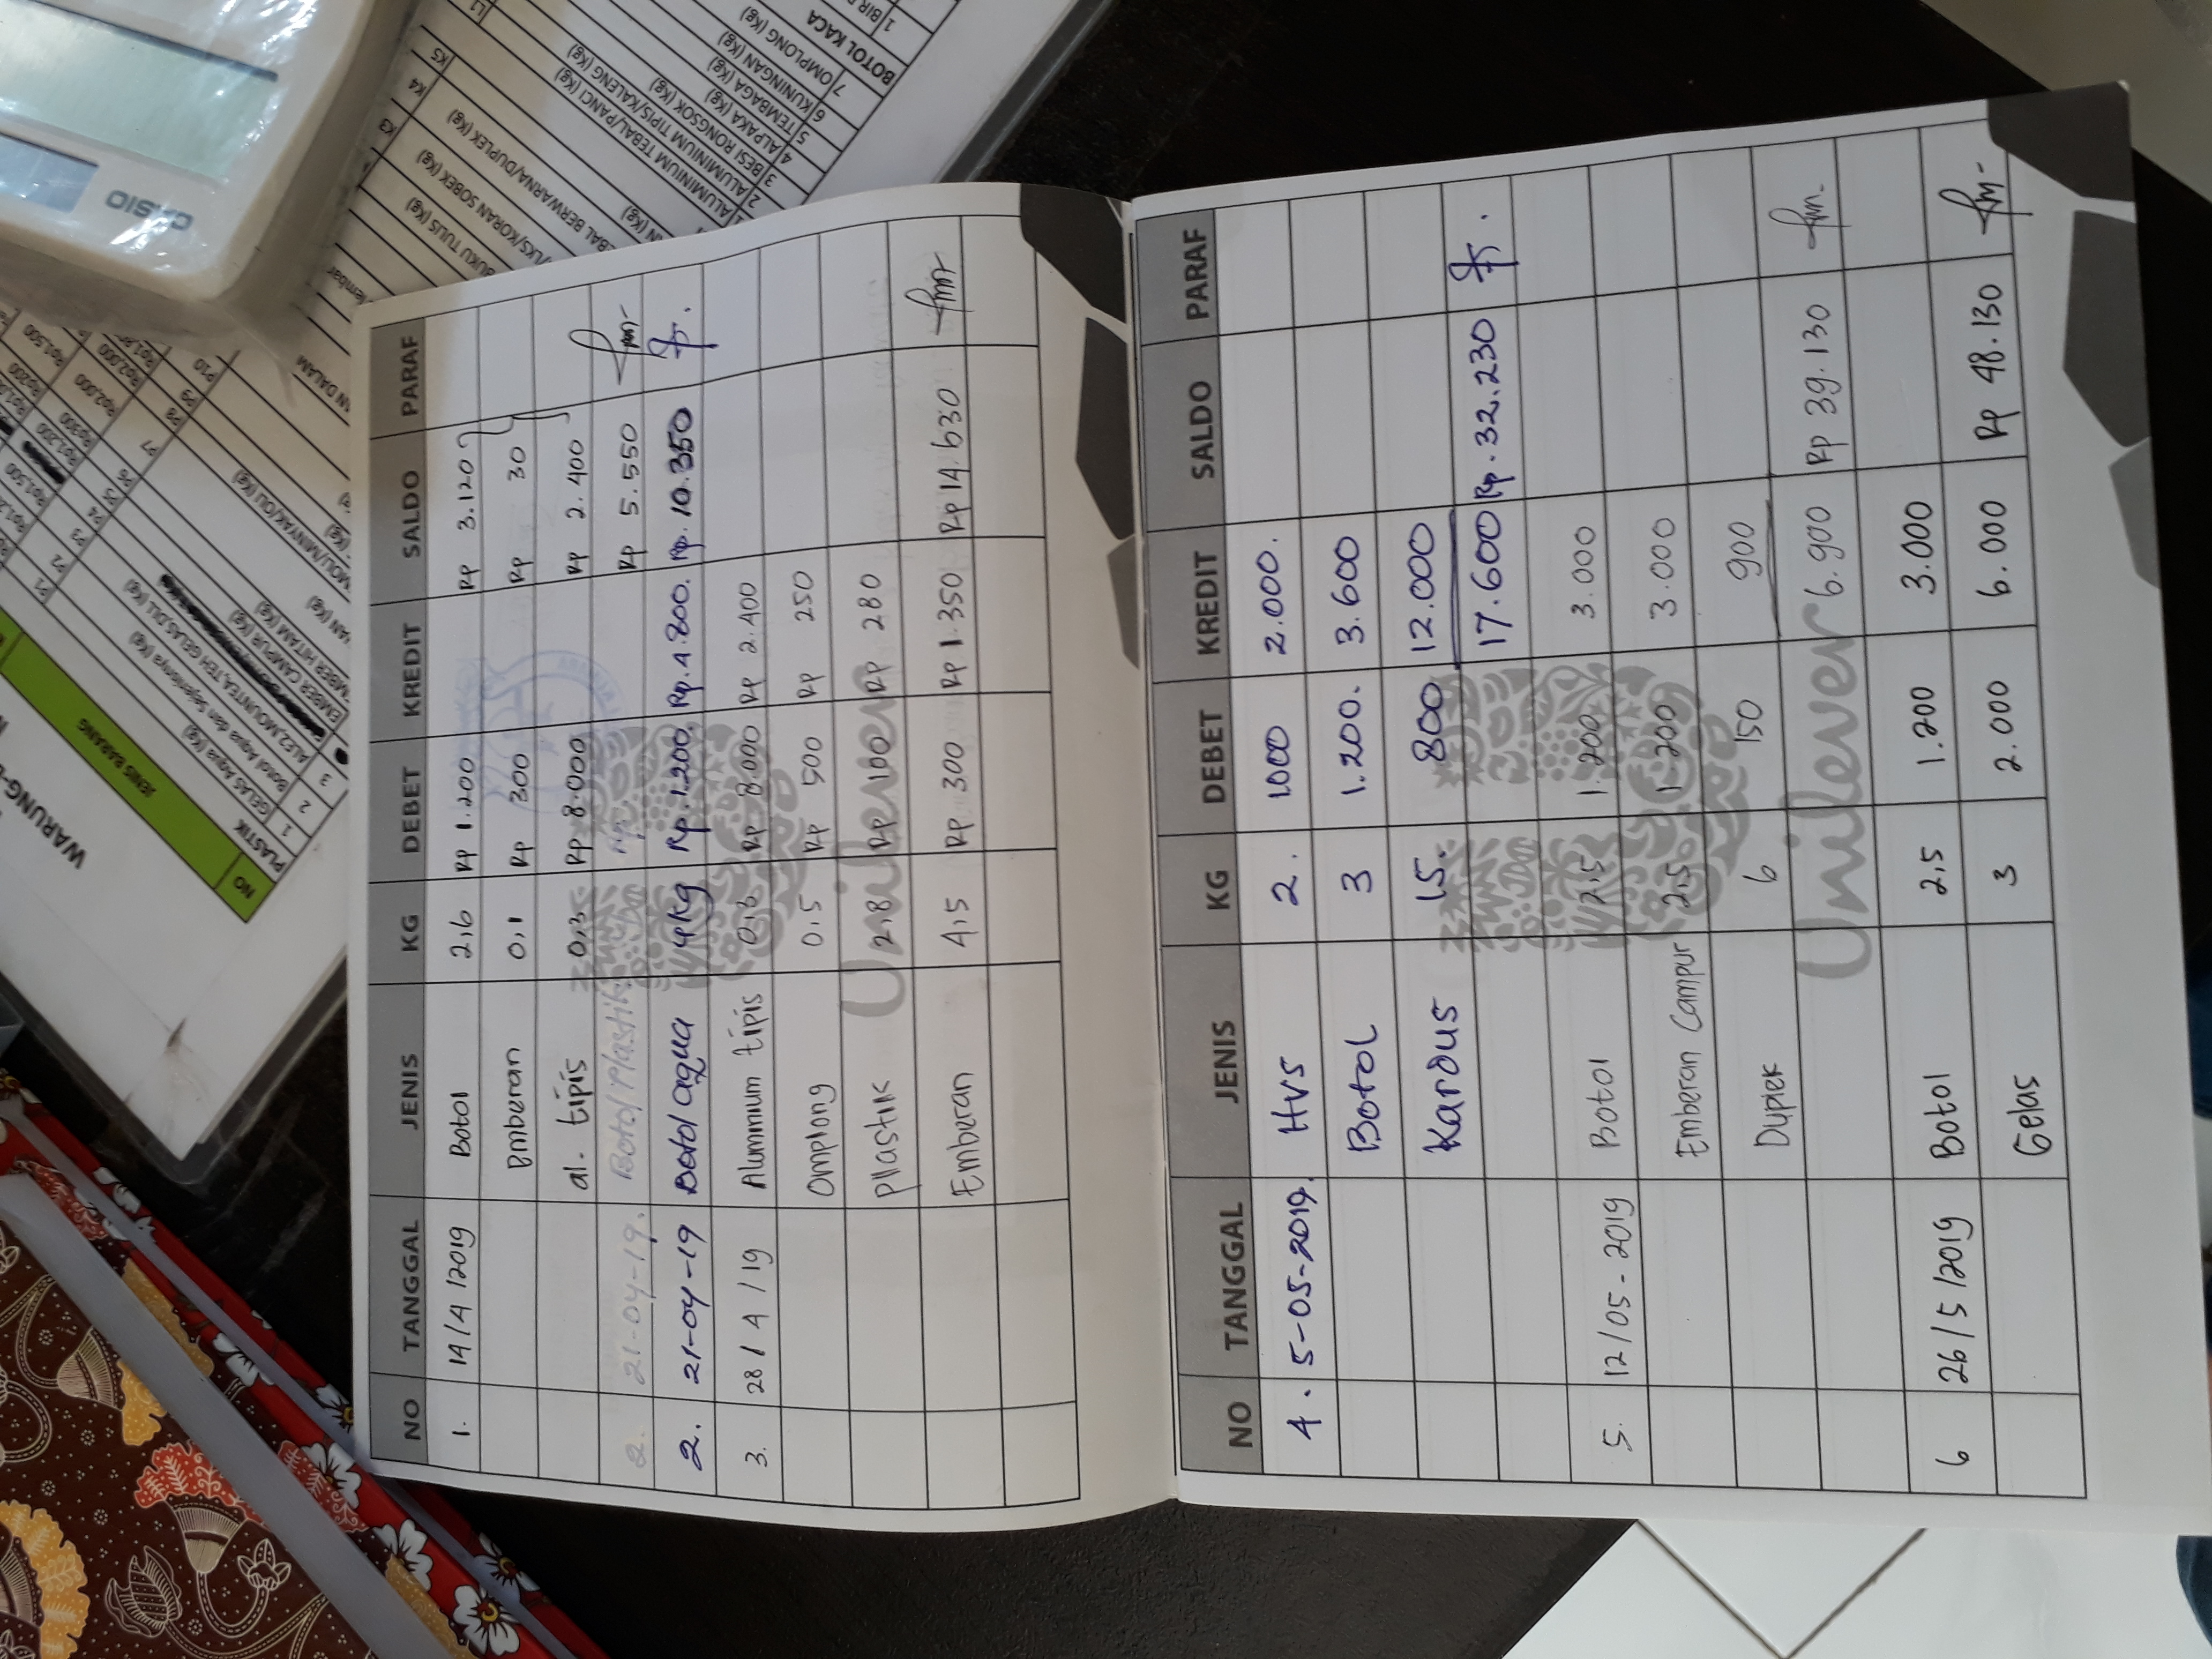 WARUNG-
NO JENIS BARANG
PLASTIK
1 GELAS Aqua (Kg) P1
2 Botol Aqua dan Sejenisnya (Kg) P2 Rp1,500
3 ALE2,MOUNTEA,TEH GELAS,DLL (Kg) P3
P4 Rp1,200
EMBER CAMPUR (Kg) P5 Rp300
MBER HITAM (Kg) P6
P7 Rp2,000
MOLI/MINYAK/OLI (Kg) P8 Rp2,000
P9
P10
Rp200
Rp1,500
CASIO
N DALAM
lembar
BUKU TULIS (Kg) K3
LKS/KORAN SOBEK (Kg) K4
BAL BERWARNA/DUPLEK (Kg) K5
L1
1 ALUMINIUM TEBAL/PANCI (Kg)
2 ALUMINIUM TIPIS/KALENG (Kg)
3 BESI RONGSOK (Kg)
4 ALPAKA (Kg)
5 TEMBAGA (Kg)
6 KUNINGAN (Kg)
7 OMPLONG (Kg)
BOTOL KACA
1 BIR
NO TANGGAL JENIS KG DEBET KREDIT SALDO PARAF
1. 14/4/2019 Botol 2,6 Rp 1.200 Rp 3.120
Emberan 0,1 Rp 300 Rp 30
al. tipis 0,3 Rp 8.000 Rp 2.400
2. 21-04-19. Botol Plastik Rp. Rp 5.550
2. 21-04-19 Botol aqua 4kg Rp.1.200. Rp.4.800. Rp. 10.350
3. 28/4/19 Aluminium tipis 0,3 Rp 8.000 Rp 2.400
Omplong 0,5 Rp 500 Rp 250
Plastik 2,8 Rp 100 Rp 280
Unilever
Emberan 4,5 Rp 300 Rp 1.350 Rp 14.630
NO TANGGAL JENIS KG DEBET KREDIT SALDO PARAF
4. 5-05-2019. HVS 2. 1.000 2.000.
Botol 3 1.200. 3.600
Kardus 15. 800 12.000
17.600 Rp. 32.230
5. 12/05-2019 Botol 2,5 1.200 3.000
Emberan Campur 2,5 1.200 3.000
Duplek 6 150 900
Unilever
6.900 Rp 39.130
6 26/5/2019 Botol 2,5 1.200 3.000
Gelas 3 2.000 6.000 Rp 48.130